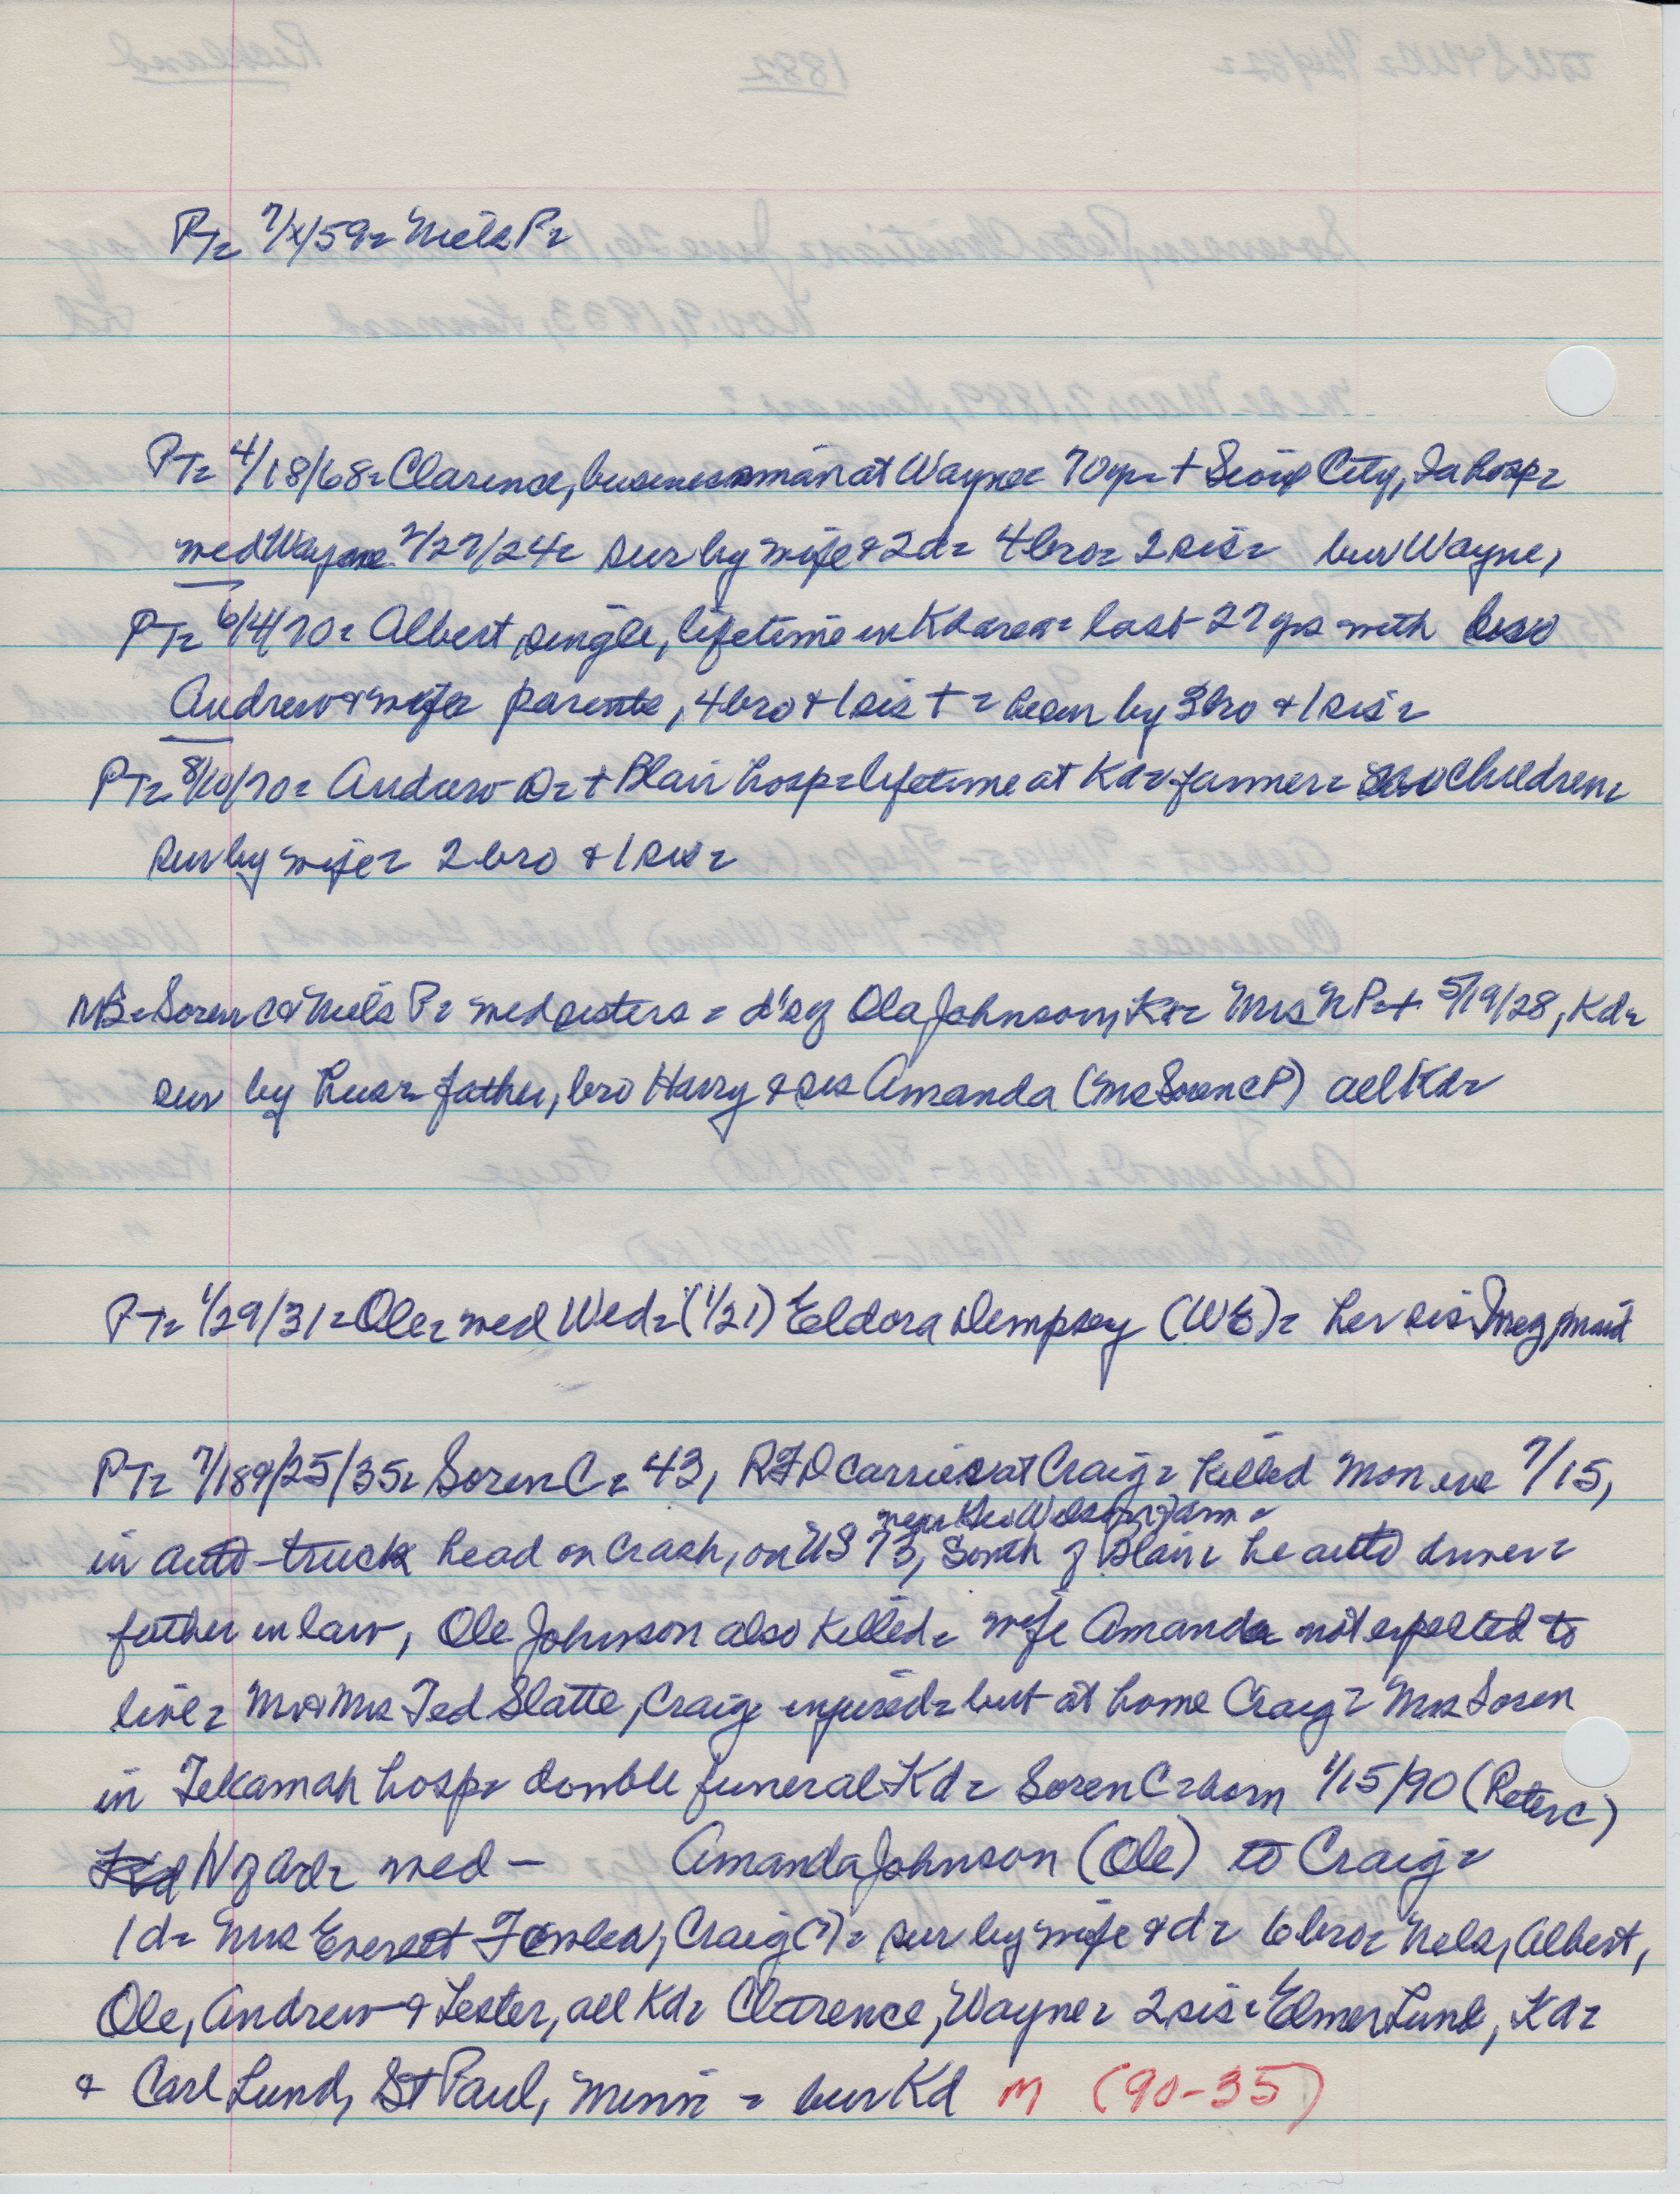 PT= 7/x/59= Niels P=
PT= 4/18/68= Clarence, businessman at Wayne= 70yr= + Sioux City, Ia hosp=
med Wayne 2/27/24= sur by wife & 2d= 4bro= 2sis= bur Wayne,
PT= 6/4/70= Albert, single, lifetime in Kd area= last 27 yrs with bro
Andrew & wife= parents, 4bro & 1sis += sur by 3bro & 1sis=
PT= 8/10/70= Andrew D= + Blair hosp= lifetime at Kd= farmer= no children=
sur by wife= 2bro & 1sis=
NB= Soren C & Niels P= med sisters = d's of Ola Johnson, Kd= Mrs N P= + 5/19/28, Kd=
sur by hus= father, bro Harry & sis Amanda (Mrs Soren C P) all Kd=
PT= 1/29/31= Ole= med Wed= (1/21) Eldora Dempsey (WE)= her sis Inez, maid
PT= 7/18&/25/35= Soren C= 43, RFD carrier at Craig= killed Mon eve 7/15,
near Wilson farm=
in auto-truck head on crash, on US 73, South of Blair= he auto driver=
father in law, Ole Johnson also killed= wife Amanda not expected to
live= Mr & Mrs Ted Slatte, Craig injured= but at home Craig= Mrs Soren
in Tekamah hosp= double funeral Kd= Soren C= born 1/15/90 (Peter C)
N of Arl= med — Amanda Johnson (Ole) to Craig=
1d= Mrs Everett Fowler, Craig(?)= sur by wife & d= 6bro= Nels, Albert,
Ole, Andrew & Lester, all Kd= Clarence, Wayne= 2sis= Elmer Lund, Kd=
& Carl Lund, St Paul, Minn = bur Kd M (90-35)